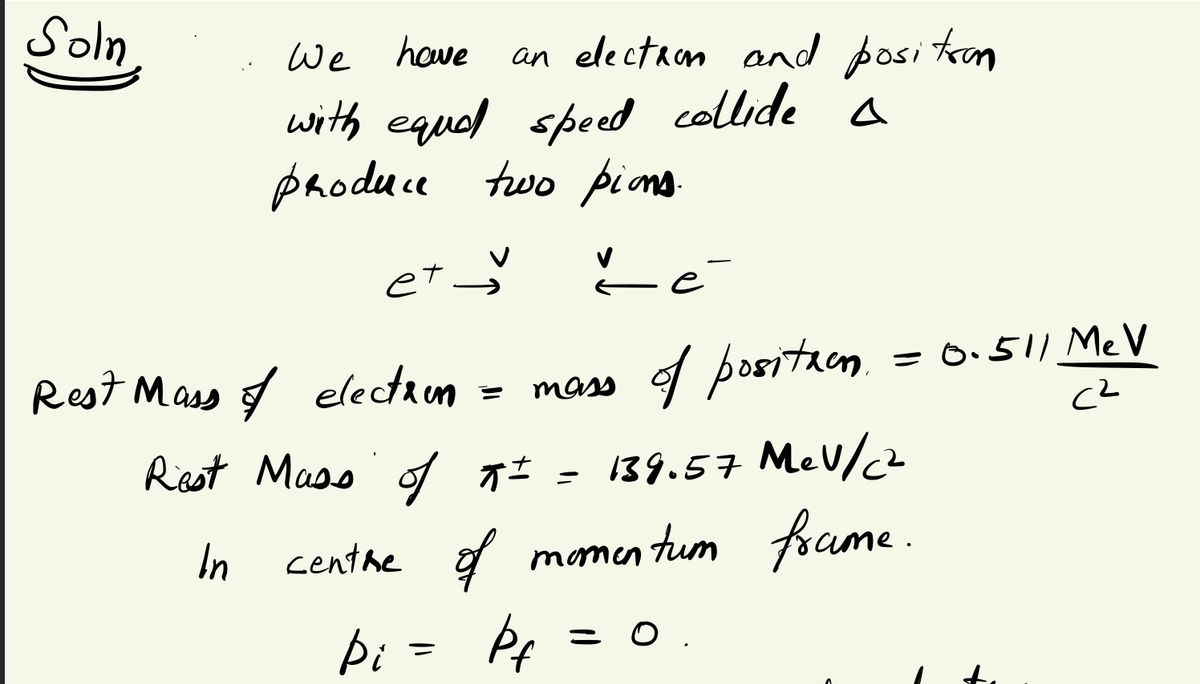 Soln
We have an electron and positron
with equal speed collide &
produce two pions.
e⁺ →ᵛ ᵛ← e⁻
Rest Mass of electron = mass of positron. = 0.511 MeV/c²
Rest Mass of π± = 139.57 MeV/c²
In centre of momentum frame.
pi = pf = 0.